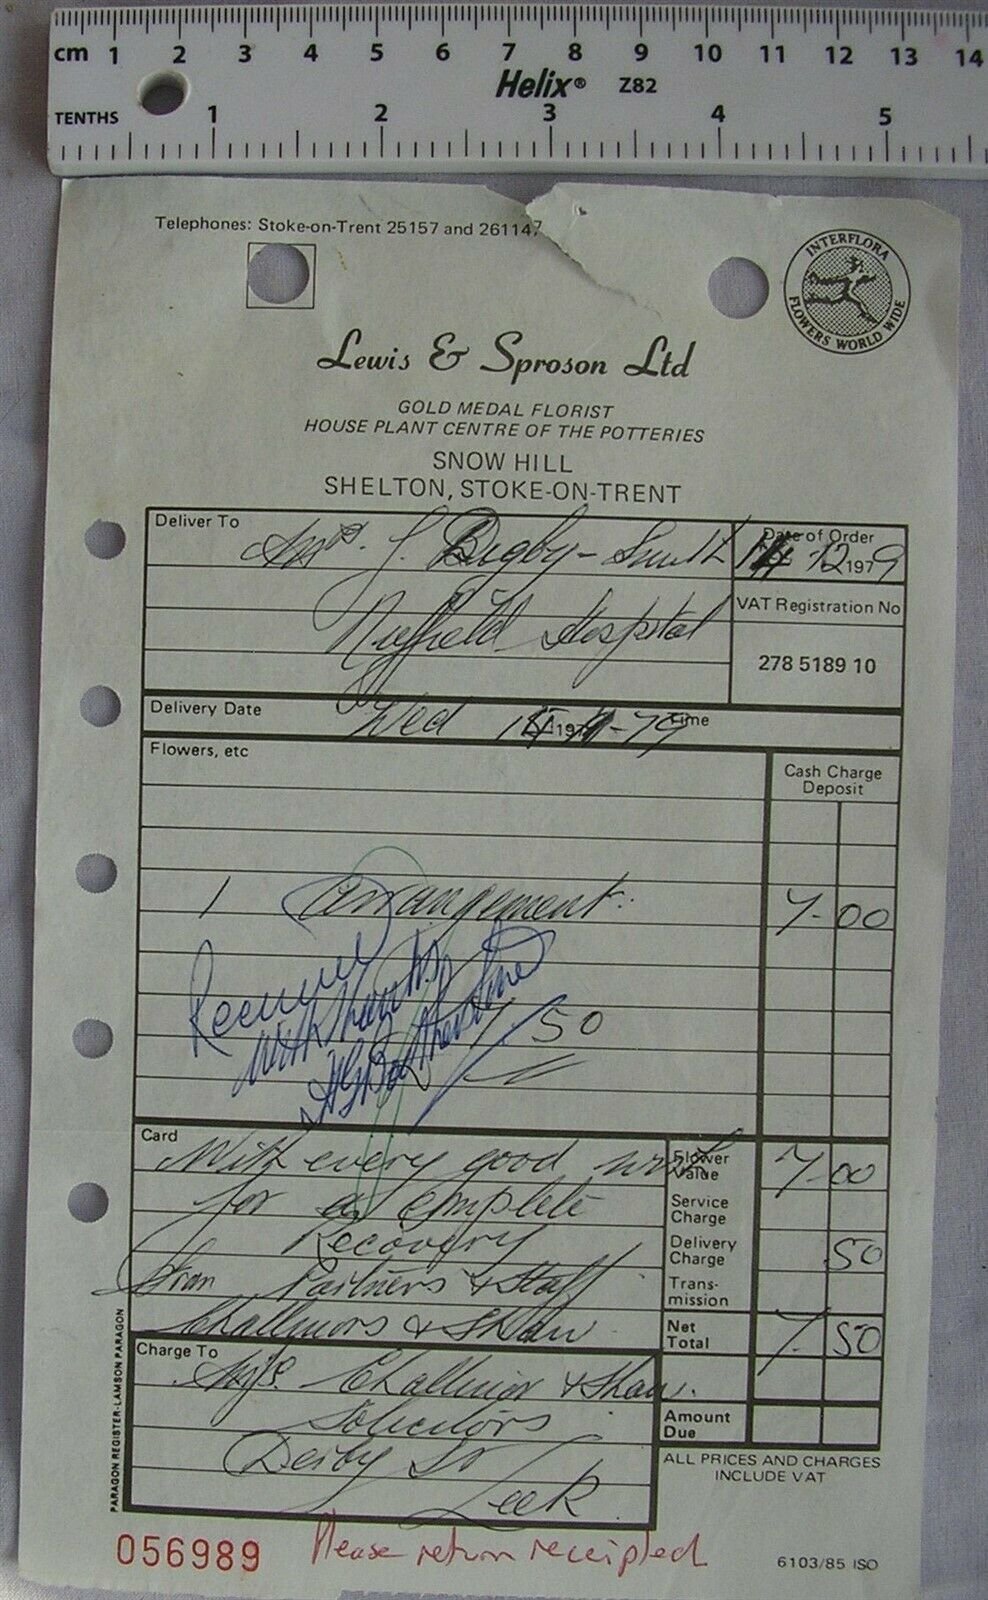 cm 1 2 3 4 5 6 7 8 9 10 11 12 13 14
Helix® Z82
TENTHS 1 2 3 4 5
Telephones: Stoke-on-Trent 25157 and 261147
INTERFLORA
FLOWERS WORLD WIDE
Lewis & Sproson Ltd
GOLD MEDAL FLORIST
HOUSE PLANT CENTRE OF THE POTTERIES
SNOW HILL
SHELTON, STOKE-ON-TRENT
Deliver To
Mrs. J. Bigby-Smith
Nuffield Hospital
Date of Order
12 1979
VAT Registration No
278 5189 10
Delivery Date
Wed 197 -79 Time
Flowers, etc
Cash Charge
Deposit
1 Arrangement. 7-00
Received
with thanks
7/50
Card
With every good wish
for a complete
Recovery
from Partners & Staff
Challinors & Shaw
Flower
Value 7-00
Service
Charge
Delivery
Charge 50
Trans-
mission
Net
Total 7.50
Amount
Due
Charge To
Challinor & Shaw.
Solicitors
Derby St
Leek
ALL PRICES AND CHARGES
INCLUDE VAT
PARAGON REGISTER-LAMSON PARAGON
056989
Please return receipted
6103/85 ISO